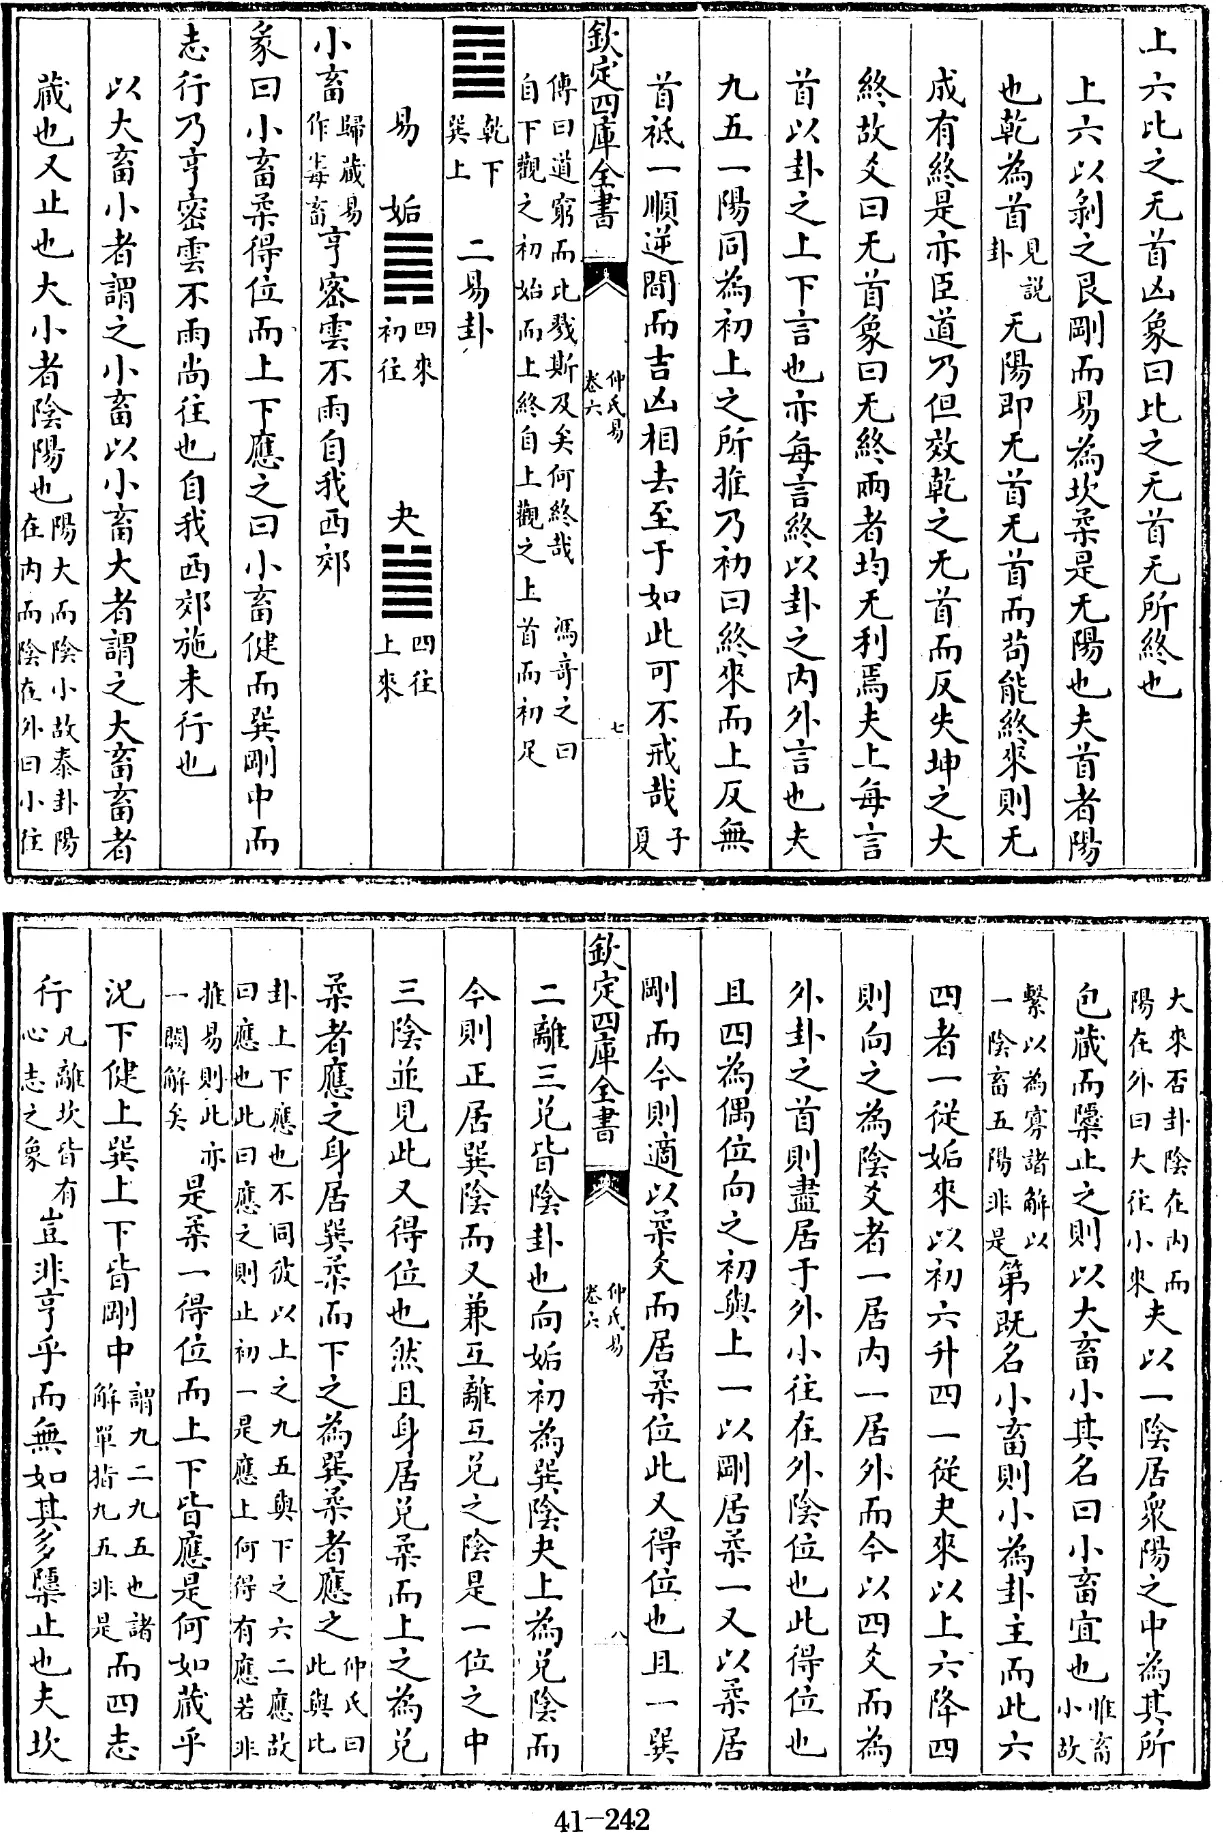 上六比之无首凶象曰比之无首无所終也
上六以剝之艮剛而易為坎柔是无陽也夫首者陽
也乾為首見説卦无陽即无首无首而苟能終來則无
成有終是亦臣道乃但效乾之无首而反失坤之大
終故爻曰无首象曰无終兩者均无利焉夫上每言
首以卦之上下言也亦每言終以卦之内外言也夫
九五一陽同為初上之所推乃初曰終來而上反無
首祗一順逆間而吉凶相去至于如此可不戒哉子夏
欽定四庫全書 仲氏易卷六 七
傳曰道窮而比戮斯及矣何終哉 馮竒之曰
自下觀之初始而上終自上觀之上首而初足
䷈乾下巽上 二易卦
易 姤䷫四來初往 夬䷪四往上來
小畜歸藏易作毒畜亨密雲不雨自我西郊
彖曰小畜柔得位而上下應之曰小畜健而巽剛中而
志行乃亨密雲不雨尚往也自我西郊施未行也
以大畜小者謂之小畜以小畜大者謂之大畜畜者
蔵也又止也大小者陰陽也陽大而陰小故泰卦陽
在内而陰在外曰小往
大來否卦陰在内而
陽在外曰大往小來夫以一陰居衆陽之中為其所
包蔵而檃止之則以大畜小其名曰小畜宜也惟畜小故
繫以為寡諸解以一陰畜五陽非是第既名小畜則小為卦主而此六
四者一從姤來以初六升四一從夬來以上六降四
則向之為陰爻者一居内一居外而今以四爻而為
外卦之首則盡居于外小往在外陰位也此得位也
且四為偶位向之初與上一以剛居柔一又以柔居
剛而今則適以柔爻而居柔位此又得位也且一巽
欽定四庫全書 仲氏易卷六 八
二離三兑皆陰卦也向姤初為巽陰夬上為兑陰而
今則正居巽陰而又兼互離互兑之陰是一位之中
三陰並見此又得位也然且身居兑柔而上之為兑
柔者應之身居巽柔而下之為巽柔者應之仲氏曰此與比
卦上下應也不同彼以上之九五與下之六二應故
曰應也此曰應之則止初一是應上何得有應若非
推易則此亦一闕解矣是柔一得位而上下皆應是何如蔵乎
況下健上巽上下皆剛中謂九二九五也諸解單指九五非是而四志
行凡離坎皆有心志之象豈非亨乎而無如其多檃止也夫坎
41-242